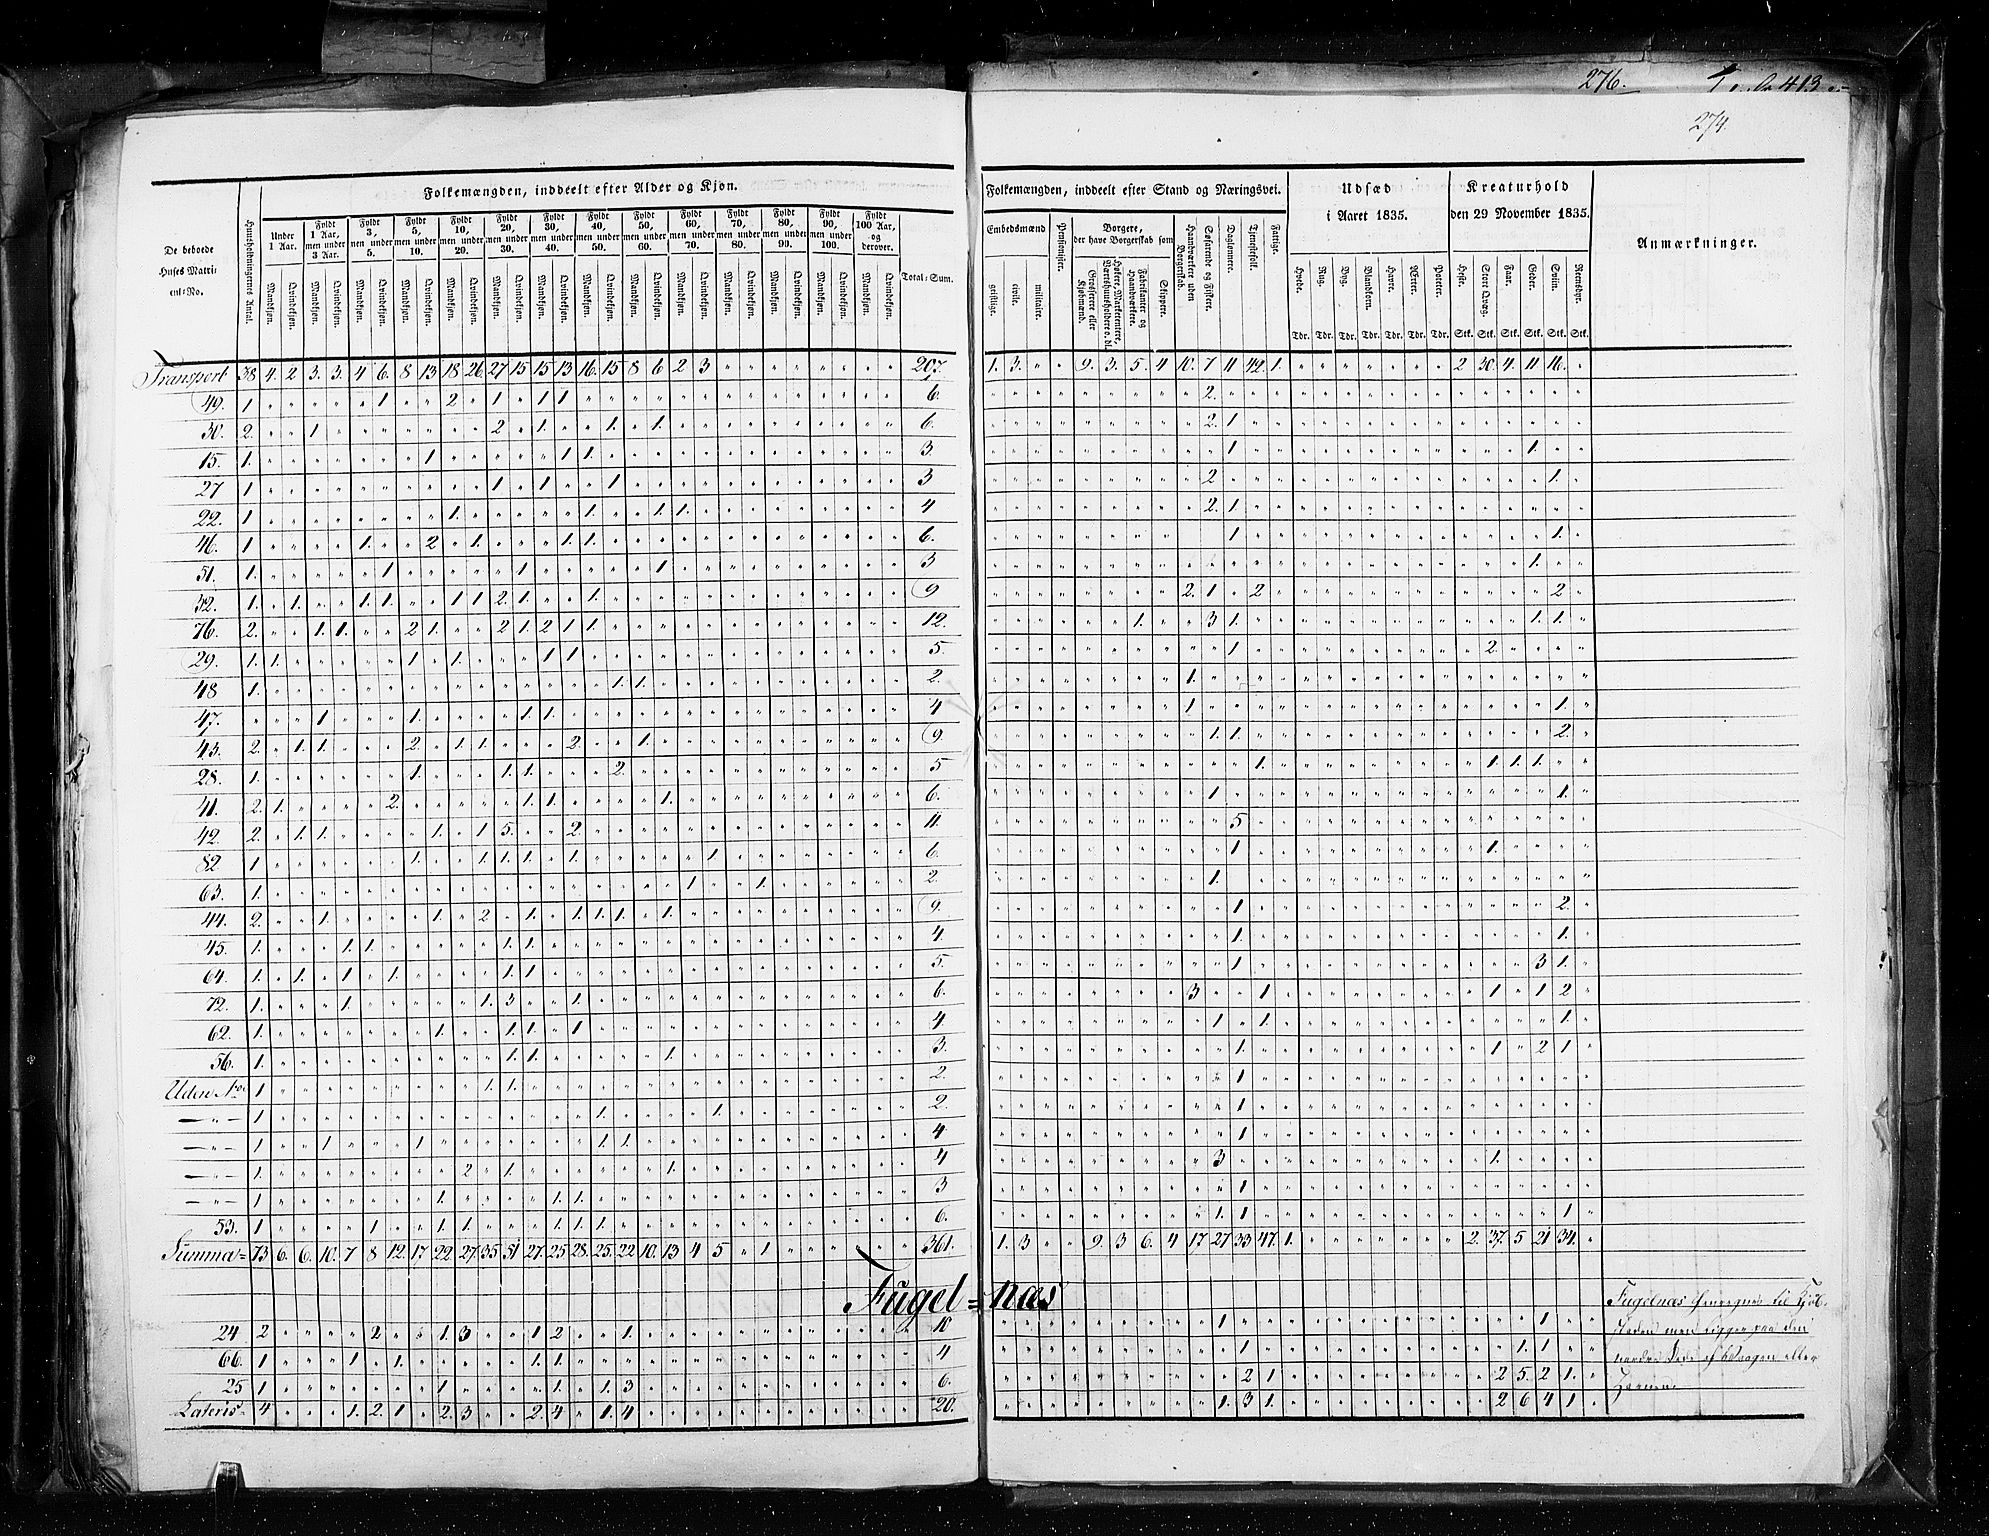 276.
274.
Folkemængden, inddeelt efter Alder og Kjøn.
De beboede Huses Matricul=No.
Huusholdningernes Antal.
Under 1 Aar.
Fyldt 1 Aar, men under 3 Aar.
Fyldt 3, men under 5.
Fyldt 5, men under 10.
Fyldt 10, men under 20.
Fyldt 20, men under 30.
Fyldt 30, men under 40.
Fyldt 40, men under 50.
Fyldt 50, men under 60.
Fyldt 60, men under 70.
Fyldt 70, men under 80.
Fyldt 80, men under 90.
Fyldt 90, men under 100.
Fyldt 100 Aar, og derover.
Mandkjøn. Qvindekjøn.
Total=Sum.
Folkemængden, inddeelt efter Stand og Næringsvei.
Embedsmænd
geistlige. civile. militaire.
Pensionister.
Borgere, der have Borgerskab som
Grosserere eller Kjøbmænd.
Høkere, Marketentere, Værtshuusholdere o. dl.
Fabrikanter og Haandværkere.
Skippere.
Haandværkere uden Borgerskab.
Søfarende og Fiskere.
Daglønnere.
Tjenestefolk.
Fattige.
Udsæd i Aaret 1835.
Hvede. Rug. Byg. Blandkorn. Havre. Ærter. Poteter.
Tdr. Tdr. Tdr. Tdr. Tdr. Tdr. Tdr.
Kreaturhold den 29 November 1835.
Heste. Stort Qvæg. Faar. Geder. Sviin. Rensdyr.
Stk. Stk. Stk. Stk. Stk. Stk.
Anmærkninger.
Transport 38 4. 2 3. 3. 4 6. 8 13 18 26. 27 15 15 13 16. 15 8 6 2 3 207. 1. 3. 9. 3. 5. 4 10. 7 11 42. 1. 2 30. 4. 11 16.
49. 1 1 2 1 1 1 6. 2.
30. 2. 1 2 1. 1. 1. 6. 2. 1
15. 1. 1 1 1. 3. 1 1.
27 1 1 1 1 3 2 1.
22. 1 1. 1. 1. 1. 4 2. 1
46. 1 1. 2 1. 1. 1. 6. 1 1.
51. 1. 1 1 1. 3 1.
32. 1. 1. 1. 1. 1 1 2. 1. 1. 9 2. 1. 2 2
76. 2. 1. 1. 2 1. 2 1. 2 1 1. 12. 1. 3 1. 1. 1.
29. 1. 1. 1 1. 1 1 5 1 2.
48 1. 1. 1. 2. 1.
47. 1 1. 1. 1. 4 1 1.
43. 2. 1. 1. 2. 1. 1. 2. 1. 9 1. 1. 2
28. 1. 1. 1. 1. 2. 5 1. 1. 1. 1.
41. 2. 1. 2. 1. 1. 1. 6. 1 1.
42. 2. 1. 1. 1. 1 5. 2. 11. 5
82. 1 1. 1. 1. 1. 1. 1 6. 1 1.
63. 1. 1 1. 2. 1.
44. 2. 1. 1. 2 1. 1. 1. 1. 1. 9. 1 2.
45. 1. 1. 1. 1. 1. 4. 1. 1.
64. 1. 1. 1 1. 1. 1. 5. 1 3 1.
72. 1. 1. 1. 3 1. 6. 3 1 1 1 2
62. 1. 1. 1. 1. 1 4. 1 1. 1.
56. 1. 1. 1. 1 3. 1. 1 2 1
Uden No 1 1. 1. 2. 1
— „ — 1 1. 1. 2. 1
— „ — 1 1 1 1. 1. 4 1
— „ — 1 2 1. 1. 4 3 1.
— „ — 1 1. 1. 1. 3 1
53. 1 1 1. 1. 1. 1. 1. 6. 1. 1 1
Summa= 73 6. 6. 10. 7 8 12. 17. 22. 27. 35. 31 27. 25 28. 25. 22 10. 13 4 5 1 361. 1. 3 9. 3 6. 4 17 27 33 47. 1. 2. 37. 5 21 34.
Fugel=næs
24 2 2 1. 3 1 2 1. 10 1 1
66. 1 1 1. 1. 1. 4 1 1. 1
25 1 1 1. 1. 3 6. 2 1 2 5. 2 1.
Lateris 4 1. 2. 1 2. 3 2. 4 1. 4 20. 1. 3 1. 2 6 4 1
Fugelnæs henregnes til Kjøb-
steden men ligger paa den
nordre Side af Vaagen eller
Havnen.